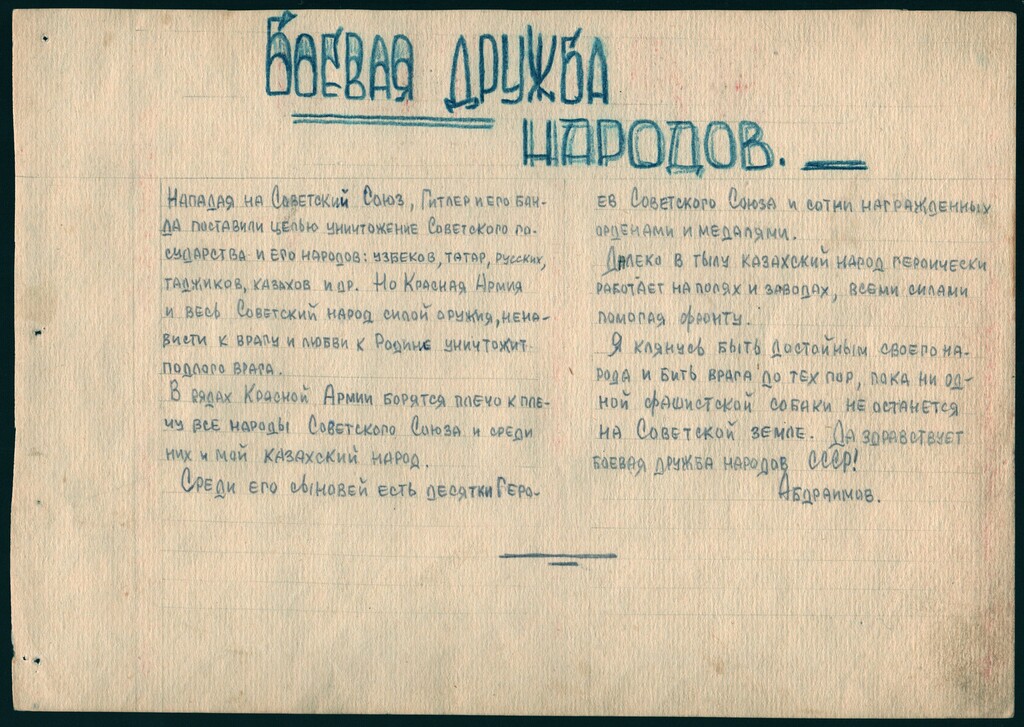 БОЕВАЯ ДРУЖБА
НАРОДОВ.
Нападая на Советский Союз, Гитлер и его бан-
да поставили целью уничтожение Советского го-
сударства и его народов: узбеков, татар, русских,
таджиков, казахов и др. Но Красная Армия
и весь Советский народ силой оружия, нена-
висти к врагу и любви к Родине уничтожит
подлого врага.
В рядах Красной Армии борятся плечо к пле-
чу все народы Советского Союза и среди
них и мой казахский народ.
Среди его сыновей есть десятки Геро-
ев Советского Союза и сотни награжденных
орденами и медалями.
Далеко в тылу казахский народ героически
работает на полях и заводах, всеми силами
помогая фронту.
Я клянусь быть достойным своего на-
рода и бить врага до тех пор, пока ни од-
ной фашистской собаки не останется
на Советской земле. Да здравствует
боевая дружба народов СССР!
Абдраимов.